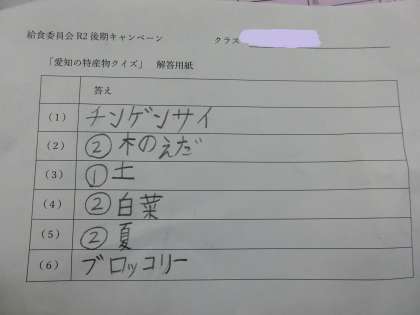 給食委員会 R2 後期キャンペーン クラス
「愛知の特産物クイズ」 解答用紙
答え
(1) チンゲンサイ
(2) ②木のえだ
(3) ①土
(4) ②白菜
(5) ②夏
(6) ブロッコリー